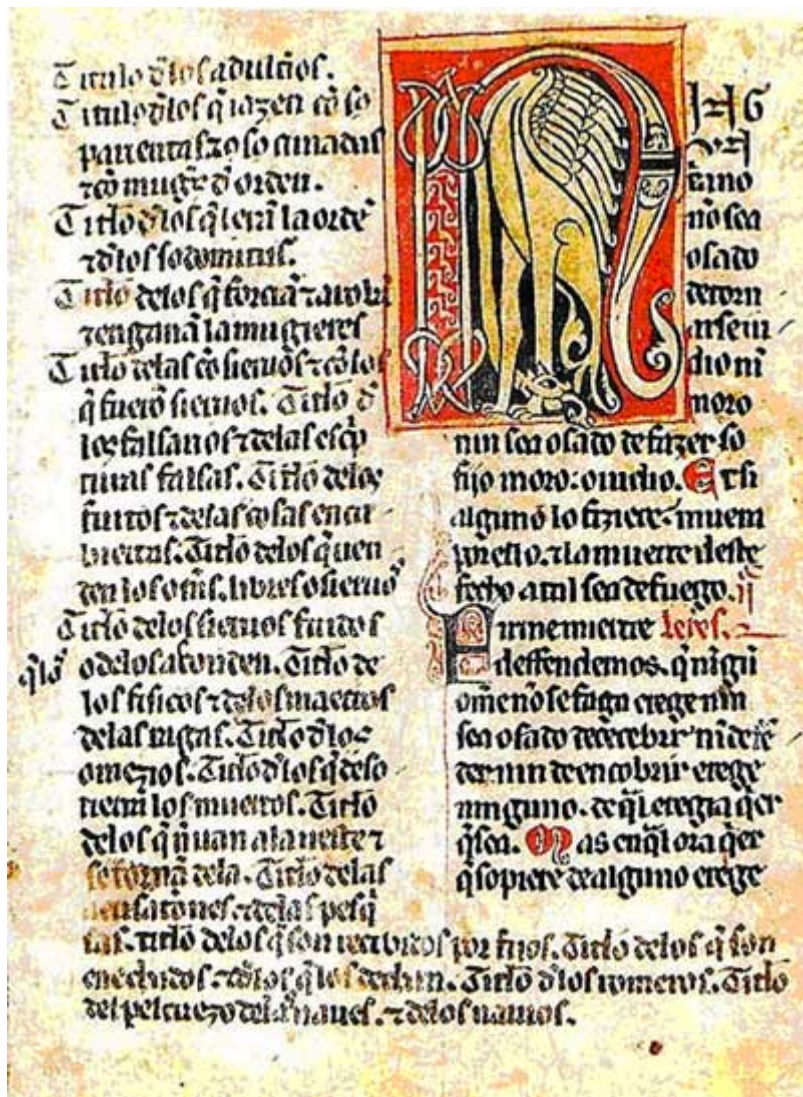 Titulo dlos adult̃ios.
Titulo dlos q̃ iazen cõ so
parientas ⁊ o so cunnadas
⁊ cõ mugr̃ d orden.
Titlo dlos q̃ lexñ la ordẽ
⁊ dlos sodomitas.
Titlo delos q̃ forciã
⁊ engannã la mugieres
Titlo delas cõ sieruos ⁊ cõ los
q̃ fuerõ sieruos. Titlo d
los falsarios ⁊ delas esc̃p
turas falsas. Titlo delos
furtos ⁊ delas cosas encu
biertas. Titlo delos q̃ uen
den los om̃s. libres o sieruos
Titlo delos sieruos fuidos
q̃ los
o delos asconden. Titlo de
los fisicos ⁊ delos maestros
delas lagas. Titlo dlos
omezios. Titlo dlos q̃ deso
tierrã los muertos. Titlo
delos q̃ nõ uan ala ueste ⁊
se tornã dela. Titlo delas
acusationes. ⁊ delas pesq̃
sas. titlo delos q̃ son recibidos por fiios. Titlo delos q̃ son
⁊ dlos q̃ los dechan. Titlo dlos romeros. Titlo
del pelcuezo delas naues. ⁊ delos nauios.
N
ING
VN
xr̃ano
nõ sea
osado
de torn
arse iu
dio nĩ
moro
nin sea osado de fazer so
fijo moro: o iudio. Et si
alguno lo fiziere. muera
por ello. ⁊ la muerte deste
fecho atal sea de fuego. ij
Firmemientre leies.
deffendemos. q̃ nĩgũ
om̃e nõ se faga erege nin
sea osado de recebir nĩ de fẽ
der nin de encobrir erege
ninguno. de q̃l eregia q̃er
q̃ sea. Mas en q̃l ora q̃er
q̃ sopiere de alguno erege